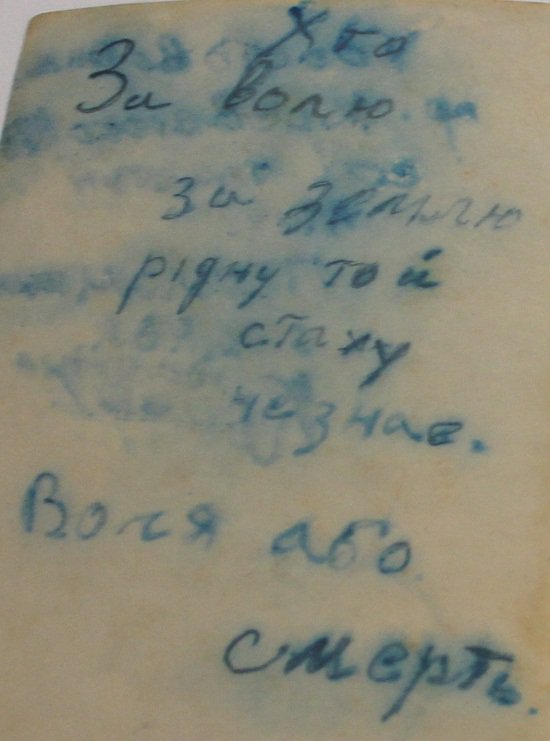 Хто
За волю
за землю
рідну той
стаху
не знає.
Воля або
смерть.